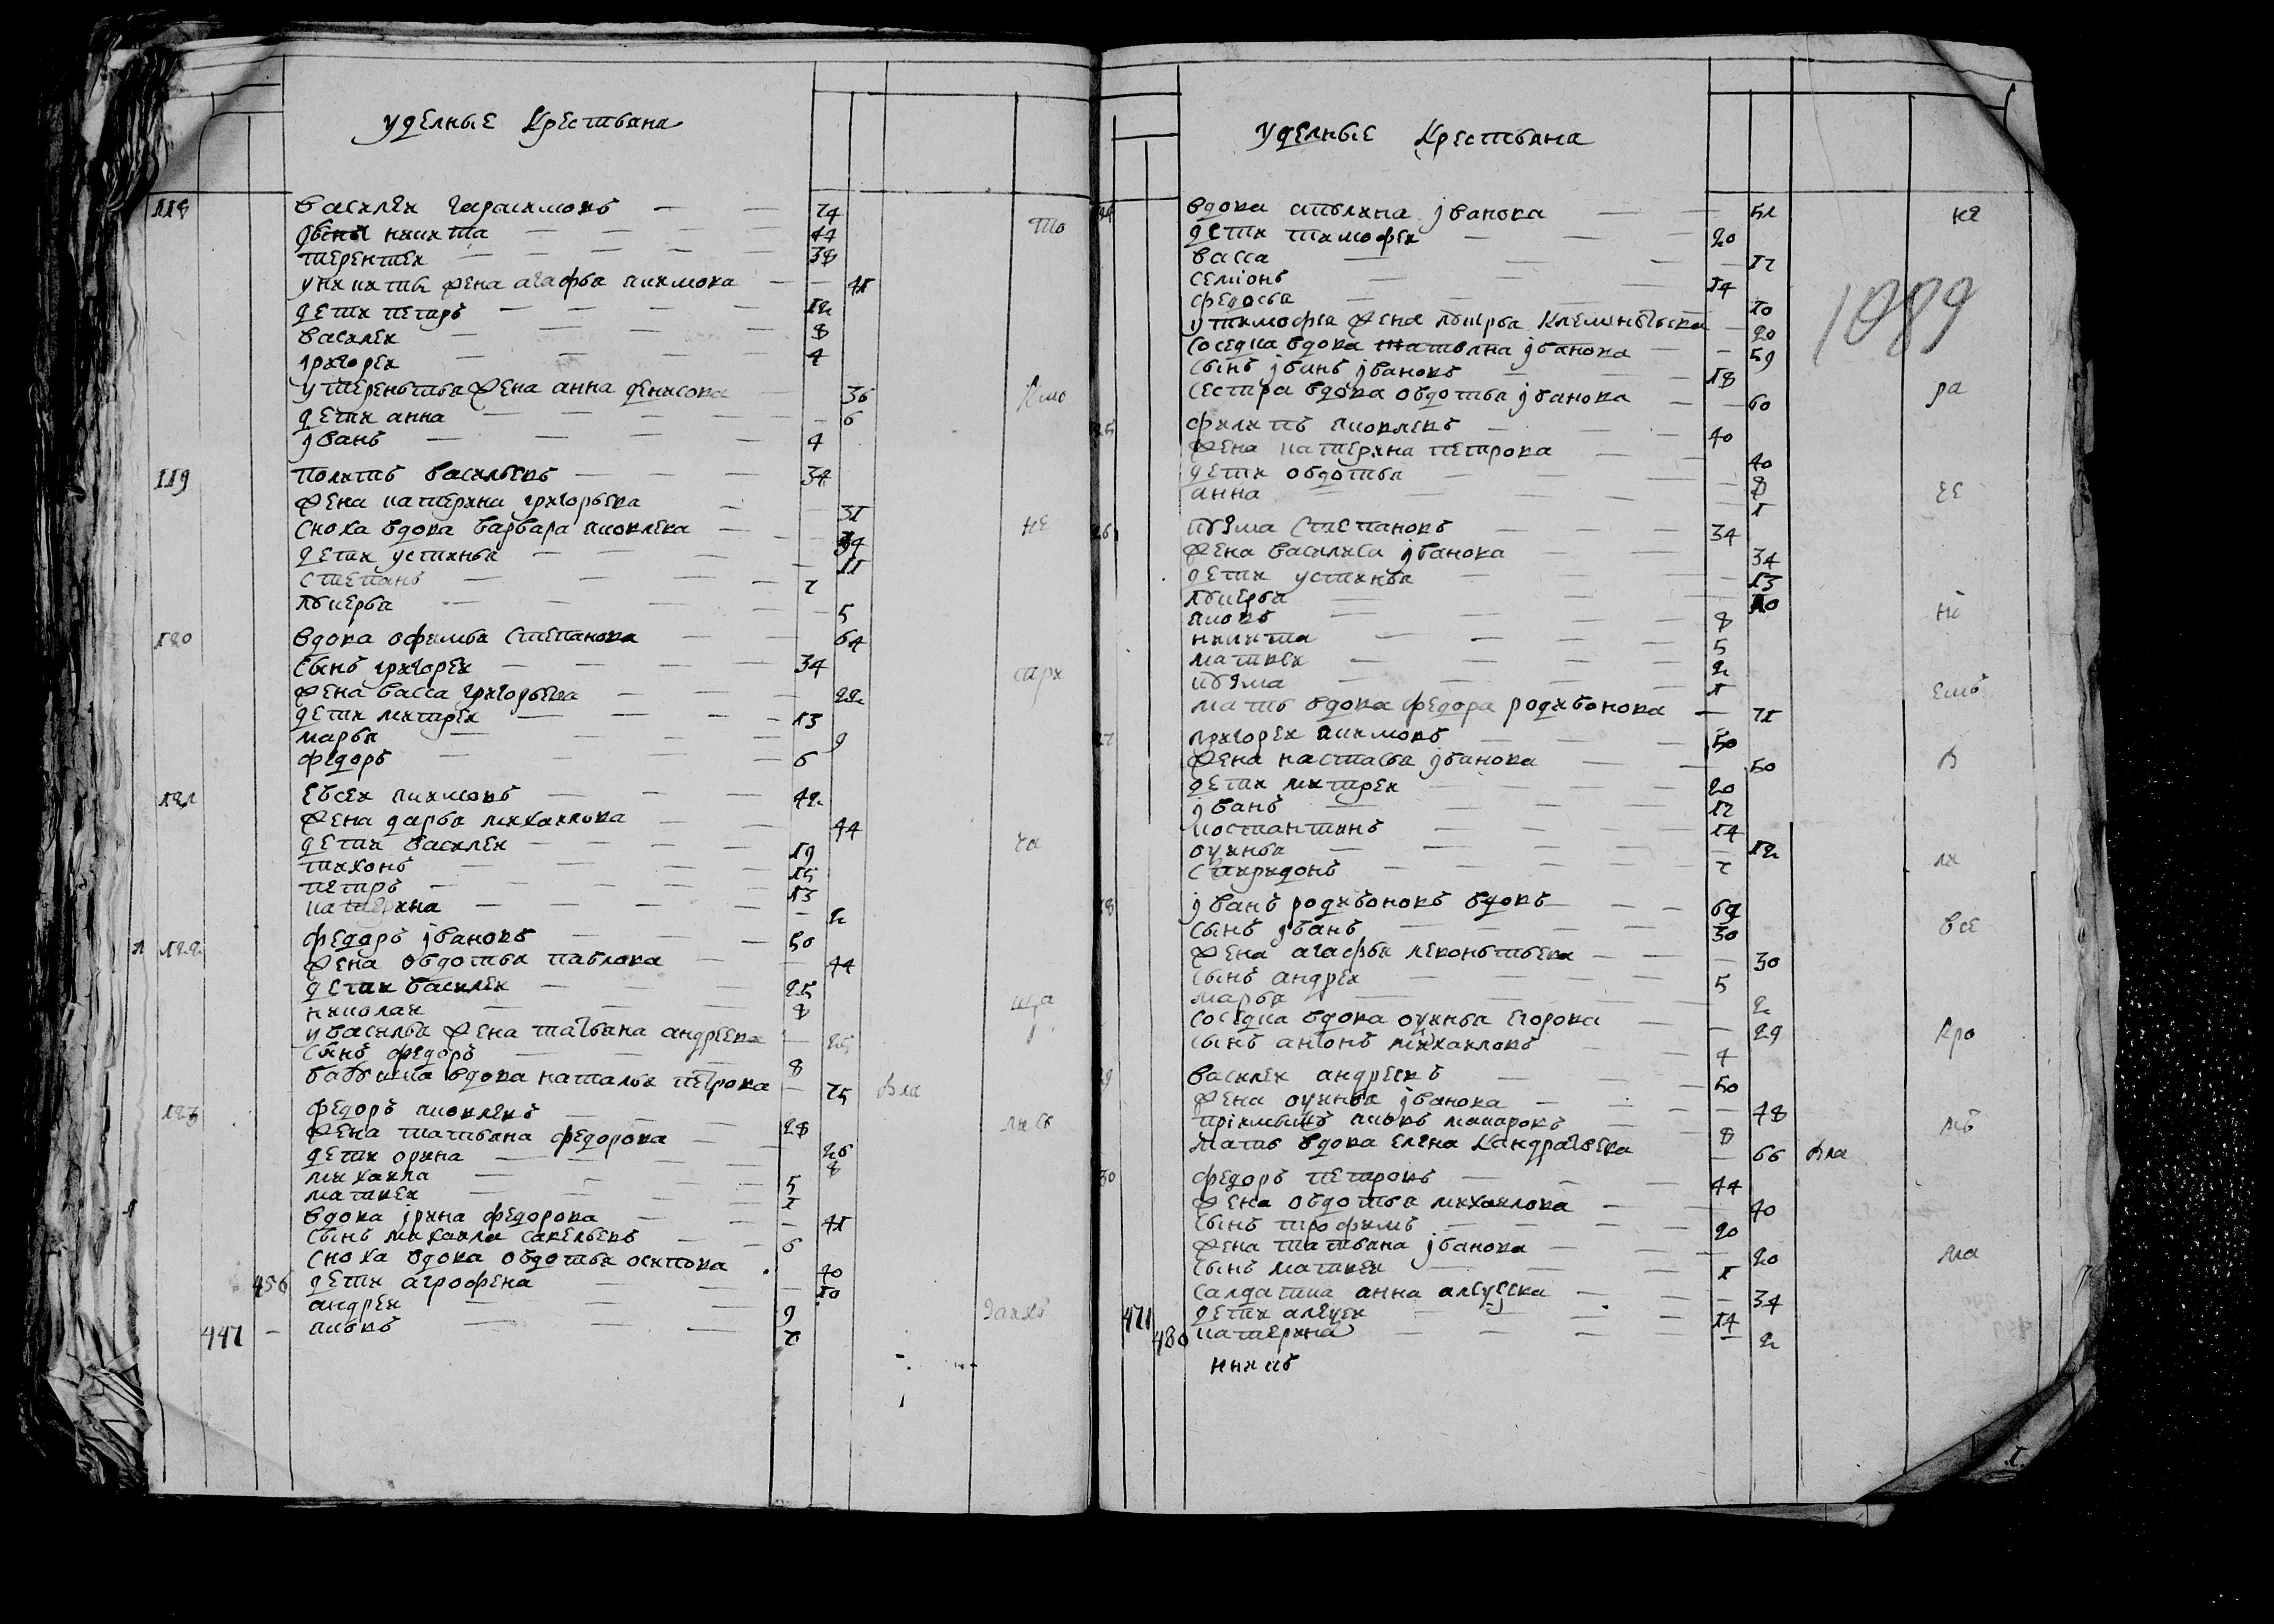 уделные крестьяна
118 василеи гарасимовъ — — 74
дѣти никита — — — 44
терентеи — — — 38
у никиты жена агафья якимова — — 41
дети петръ — — — 12
василеи — — — 8
григореи — — — 4
у терентья жена анна денисова — 36
дети анна — — — 6
јванъ — — — 4
119 яковъ васильевъ — — 34
жена катерина григорьева — 31
сноха вдова варвара яковлева — — 34
дети устинья — — — 11
степанъ — — — 7
лукерья — — — 5
120 вдова офимья степанова — — 64
сынъ григореи — — — 34
жена васса григорьева — — 22
дети митреи — — — 13
марья — — — 9
федоръ — — — 6
121 евсеи якимовъ — — — 42
жена дарья михаилова — — 44
дети василеи — — — 19
тихонъ — — — 15
петръ — — — 13
катерина — — — 2
122 федоръ јвановъ — — — 50
жена овдотья павлова — — 44
дети василеи — — — 25
николаи — — — 8
у василья жена татьяна андреева — 25
сынъ федоръ — — — 8
бабушка вдова наталья петрова — 75
123 федоръ яковлевъ — — 28
жена татьяна федорова — — 26
дети орина — — — 8
михаила — — — 5
матвеи — — — 1
вдова јрина федорова — — 41
сынъ михаила савельевъ — — 6
сноха вдова овдотья осипова 40
456 дети агрофена — — 10
андреи — — — 9
447 — яковъ — — — 7
уделные крестьяна
вдова јванова — — 51
дети тимофеи — — — 20
васса — — — 17
семіонъ — — — 14
федосья — — — 10
у тимофея жена лукерья клеменьтьева — 20
соседка вдова јванова — — 59
сынъ јванъ јвановъ — — 18
сестра вдова овдотья јванова — — 60
25 филипъ яковлевъ — — 40
жена катерина петрова — — 40
дети овдотья — — — 8
анна — — — 1
26 кузма степановъ — — — 34
жена василиса јванова — 34
дети устинья — — — 13
лукерья — — — 10
яковъ — — — 8
никита — — — 5
матвеи — — — 2
кузма — — — 1
мать вдова федора родивонова — 71
27 григореи якимовъ — — — 50
жена настасья јванова — — 50
дети митреи — — — 20
јванъ — — — 17
костантинъ — — — 14
оулья — — — 12
спиридонъ — — — 7
28 јванъ родивоновъ вдовъ — — 69
сынъ јванъ — — — 30
жена агафья леконьтьева — — 30
сынъ андреи — — — 5
марья — — — 2
соседка вдова егорова — — 29
сынъ антонъ михаиловъ — — 4
29 василеи андреевъ — — 50
жена јванова — — 48
пріимышъ яковъ макаровъ — — 8
мать вдова елена кандратьева — 66
30 федоръ петровъ — — — 44
жена овдотья михаилова — — 40
сынъ трофимъ — — — 20
жена татьяна јванова — — 20
сынъ матвеи — — — 1
салдатка анна алеуеева — — 34
471 дети алеуеи — — — 14
480 катерина — — — 2
1089